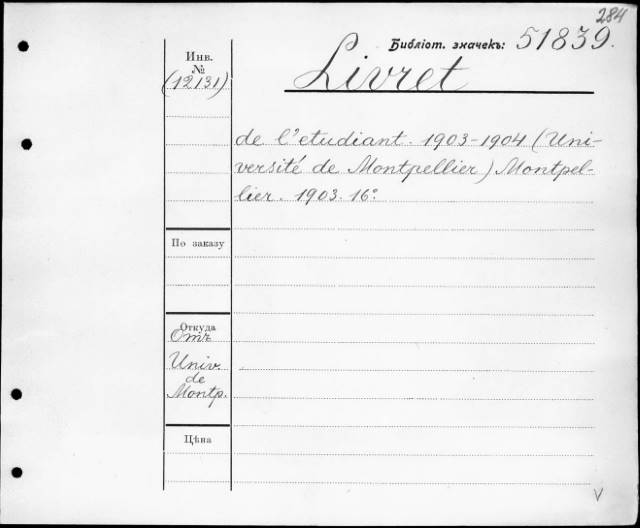 284
Библіот. значекъ: 51839.
Инв.
№
(12131)
Livret
de l'etudiant. 1903-1904 (Uni-
versité de Montpellier) Montpel-
lier. 1903. 16º
По заказу
Откуда
Отъ
Univ.
de
Montp.
Цѣна
V